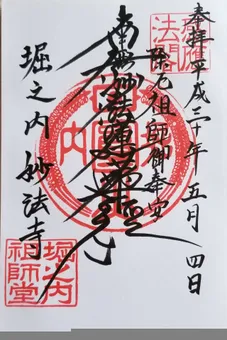 奉拝 平成三十年五月四日
除厄祖師御奉安
南無妙法蓮華経
堀之内 妙法寺
堀之内
祖師堂